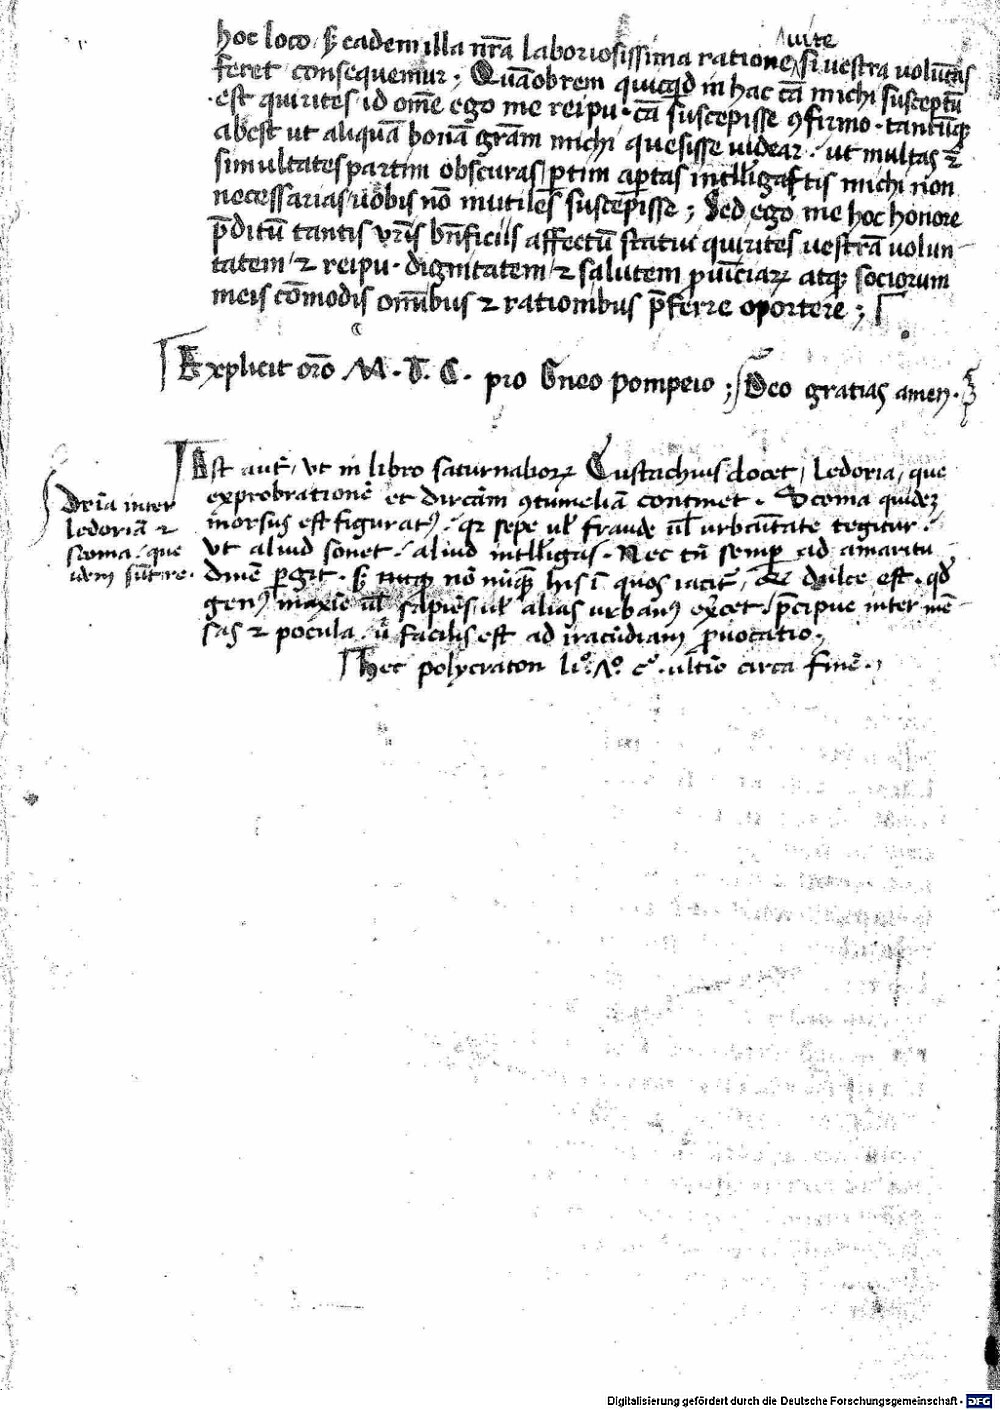 hoc loco / s̄ eadem illa nr̄a laboriosissima ratione vite si vestra volūtas
feret consequemur ; Quāobrem quicq̄d in hac cām michi susceptū
est quirites / id om̄e ego me reipu · cā suscepisse ꝯfirmo · tantūq̨
abest ut aliquā bonā grām michi quesisse videar / ut multas ⁊
simultates partim obscuras / ꝑtim aꝑtas intelligā ftis michi non
necessarias / vobis nō inutiles suscepisse ; Sed ego me hoc honore
p̄ditū tantis vr̄is bn̄ficiis affectū statui quirites vestrā volun
tatem / ⁊ reipu · dignitatem / ⁊ salutem ꝓuīciaꝝ atq̨ sociorum
meis cōmodis om̄ibus ⁊ rationibus p̄ferre oportere ;
Explicit orō M · T · C · pro Gneo Pompeio ; Deo gratias amen ·
Est aut̄ / ut in libro saturnalioꝝ Eustachius docet / ledoria / que
exprobrationē et dircām ꝯtumeliā continet · Scoma quidez
morsus est figuratꝰ / qꝛ sepe vl̄ fraude vl̄ urbanitate tegitur /
ut aliud sonet / aliud intelligas · Nec tn̄ semꝑ ad amaritu
dinē ꝑgit · s̄ nō nūq̄ his ī quos iacit̄ / dulce est · qd̄
genꝰ maxīe vl̄ sapiēs / vl̄ alias urbanꝰ exꝰcet / p̄cipue inter mē
sas ⁊ pocula · u facilis est ad iracūdiam ꝓuocatio ;
Hec polycraton li° · c° · ultīo circa finē ·
Dr̄ia inter
ledoriā ⁊
scoma / que
idem sūt re ·
Digitalisierung gefördert durch die Deutsche Forschungsgemeinschaft - DFG